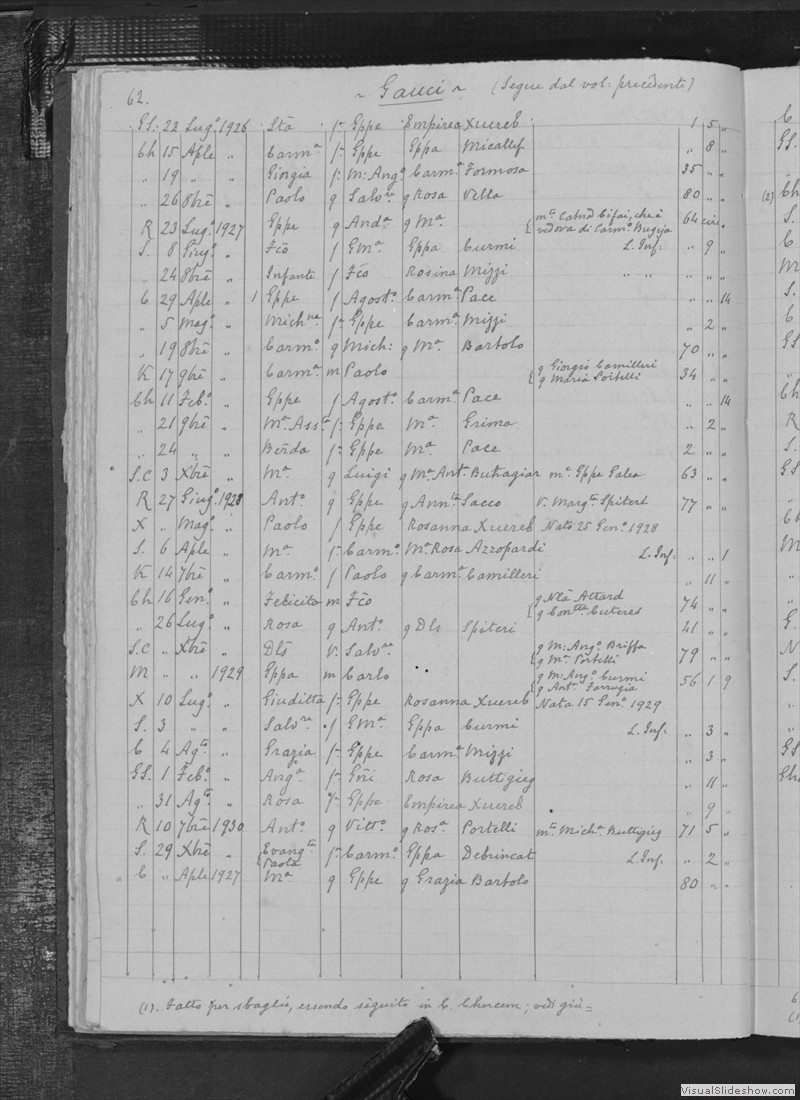 62. ~ Gauci ~ (Segue dal vol: precedente)
GS. 22 Lug.º 1926 Sta f. Eppe Empirea Xuereb 1 5 „
Ch 15 Aple „ Carmª f. Eppe Eppa Micallef „ 8 „
„ 19 „ „ Giorgia f. M: Angº Carmª Formosa 35 „ „
„ 26 8bre „ Paolo q Salvre q Rosa Vella 80 „ „
R 23 Lugº 1927 Eppe q Andª q Mª mº Catnª Cifai, che è 64 circ „
vedova di Carmº Bugeja
S. 8 Giugº „ Fco f Gmª Eppa Curmi L. Inf. „ 9 „
„ 24 8bre „ Infante f Fco Rosina Mizzi „ „ „ „ „
C 29 Aple „ 1 Eppe f Agostº Carmª Pace „ „ 14
„ 5 Magº „ Michne f. Eppe Carmª Mizzi „ 2 „
„ 19 8bre „ Carmº q Mich: q Mª Bartolo 70 „ „
q Giorgio Camilleri
K 17 9bre „ Carmª m Paolo q Maria Portelli 34 „ „
Ch 11 Febº „ Eppe f Agostº Carmª Pace „ „ 14
„ 21 9bre „ Mª Assta f. Eppe Mª Grima „ 2 „
„ 24 „ „ Berda f. Eppe Mª Pace 2 „ „
S.C 3 Xbre „ Mª q Luigi q Mª Ant. Buttagiar mº Eppe Galea 63 „ „
R 27 Giugº 1928 Antº q Eppe q Annta Sacco V. Margta Spiteri 77 „ „
X „ Magº „ Paolo f Eppe Rosanna Xuereb Nato 25 Genº 1928
S. 6 Aple „ Mª f. Carmº Mª Rosa Azzopardi L. Inf. „ „ 1
K 14 7bre „ Carmº f Paolo q Carmª Camilleri „ 11 „
Ch 16 Genº „ Felicita m Fco q Nta Attard 74 „ „
q Contta Cuteres
„ 26 Lugº „ Rosa q Antº q Dls Spiteri 41 „ „
S.C „ Xbre „ Dls V. Salvre q M: Angº Briffa 79 „ „
q Mª Portelli
M „ „ 1929 Eppa m Carlo q M: Angº Curmi 56 1 9
q Antª Farrugia
X 10 Lugº „ Giuditta f. Eppe Rosanna Xuereb Nata 15 Genº 1929
S. 3 „ „ Salvre f Gmª Eppa Curmi L. Inf. „ 3 „
C 4 Agto „ Grazia f. Eppe Carmª Mizzi „ 3 „
GS. 1 Febº „ Angª f. Gni Rosa Buttigieg „ 11 „
„ 31 Agto „ Rosa f. Eppe Empirea Xuereb „ 9 „
R 10 7bre 1930 Antº q Vittº q Rosª Portelli mto Michª Buttigieg 71 5 „
S. 29 Xbre „ Evangta f. Carmº Eppa Debrincat L. Inf. „ 2 „
Paola
„ C „ Aple 1927 Mª q Eppe q Grazia Bartolo 80 „ „
(1). Fatto per sbaglio, essendo seguito in C. Chercem; vedi giù =
VisualSlideshow.com